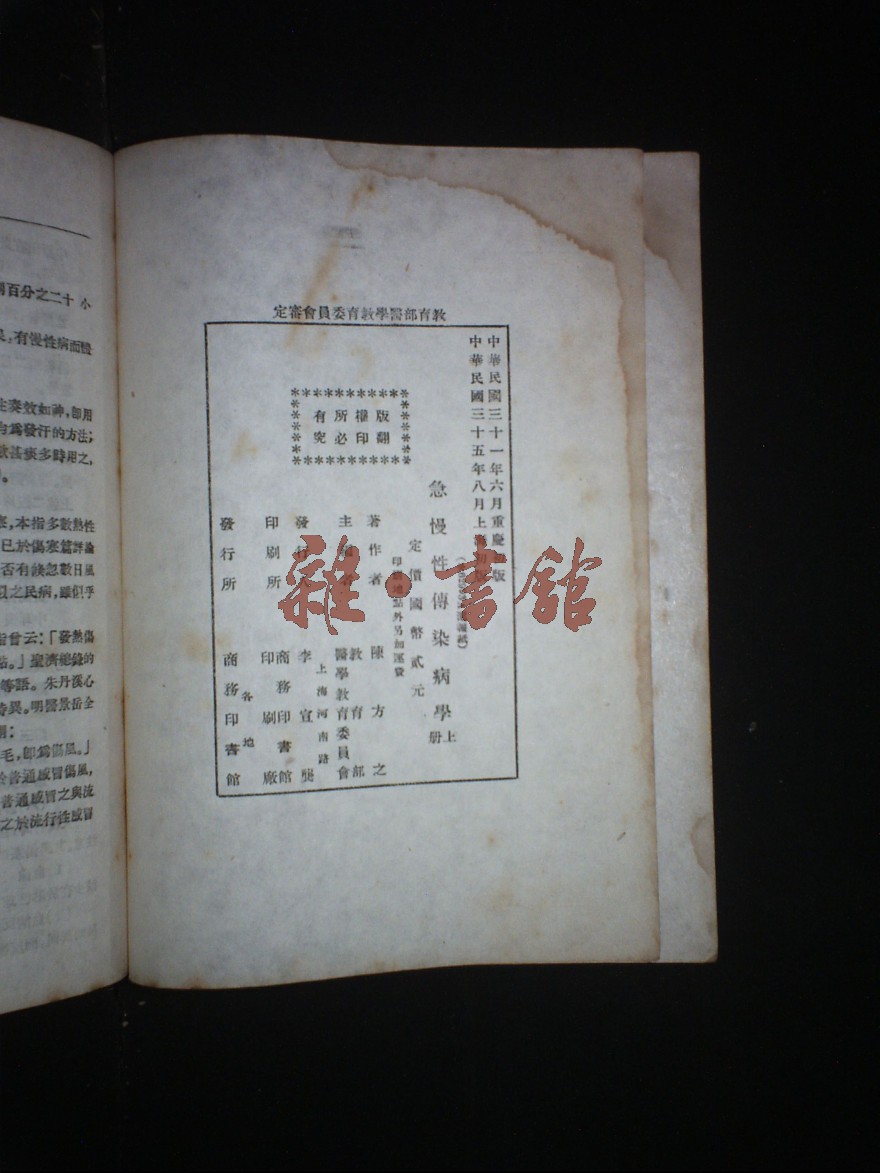 教育部醫學教育委員會審定
中華民國三十一年六月重慶初版
中華民國三十五年八月上海初版
急慢性傳染病學 上册
定價國幣貳元
印刷地點外另加運費
版權所有
翻印必究
著作者 陳方之
主編者 教育部醫學教育委員會
發行人 李宣龔
上海河南路
印刷所 商務印書館印刷廠
發行所 各地 商務印書館
雜·書館
百分之二十 小
有慢性病而體
奏效如神,卽用
爲發汗的方法;
甚痰多時用之,
本指多數熱性
已於傷寒篇評論
否有缺忽數日風
之民病,雖似乎
曾云:「發熱傷
」聖濟總錄的
等語。朱丹溪心
異。明醫景岳全
毛,卽爲傷風。」
於普通感冒傷風,
普通感冒之與流
之於流行性感冒